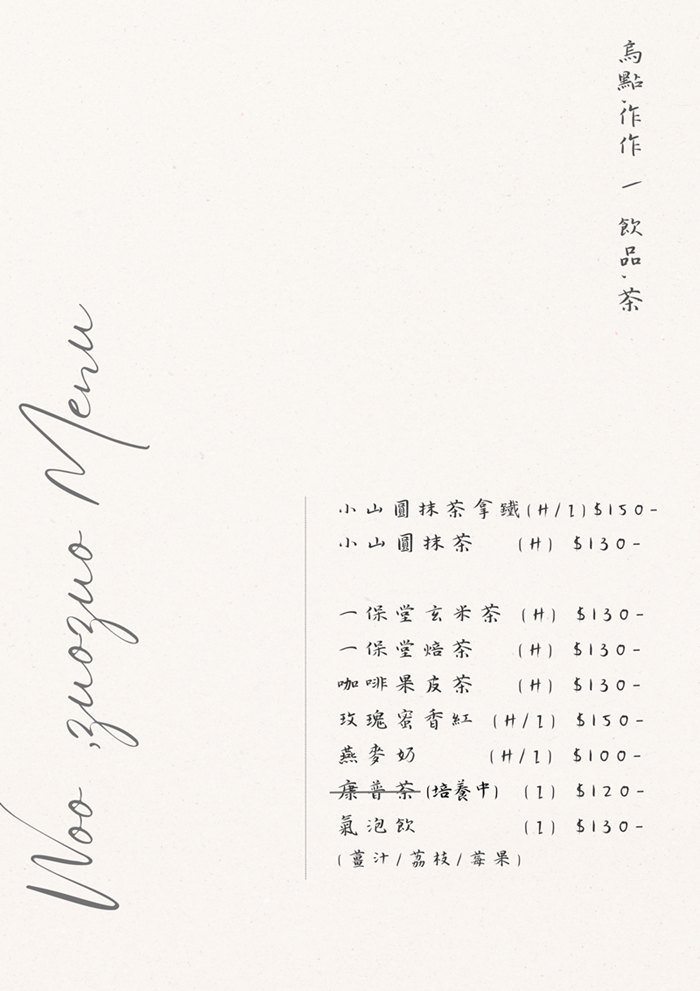 烏點作作 — 飲品·茶
Woo ;zuozuo Menu
小山圓抹茶拿鐵(H/I)$150-
小山圓抹茶 (H) $130-
一保堂玄米茶 (H) $130-
一保堂焙茶 (H) $130-
咖啡果皮茶 (H) $130-
玫瑰蜜香紅 (H/I) $150-
燕麥奶 (H/I) $100-
康普茶(培養中) (I) $120-
氣泡飲 (I) $130-
(薑汁/荔枝/莓果)